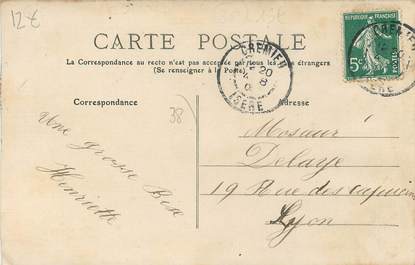 12€
CARTE POSTALE
La Correspondance au recto n'est pas acceptée par tous les pays étrangers
(Se renseigner à la Poste)
CREMIEU
20
8
ISERE
REPUBLIQUE FRANÇAISE
5c
CREMIEU
ISERE
Correspondance
38
Adresse
Une grosse Bise
Henriette
Mosieur
Delaye
19 Rue des capucins
Lyon